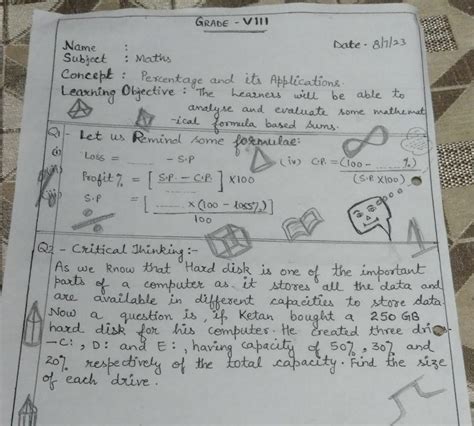 GRADE - VIII
Name :
Date - 8/7/23
Subject : Maths
Concept : Percentage and its Applications.
Learning Objective : The learners will be able to
analyse and evaluate some mathemat
-ical formula based sums.
Q1 - Let us Remind some formulae:
(i) Loss = ____ - S.P
(iv) C.P. = (100 - ____ %)
(S.P X100)
Profit % = [ S.P - C.P. ] X100
S.P = [ ____ x (100 - loss%) ]
100
Q2 - Critical Thinking :-
As we know that Hard disk is one of the important
parts of a computer as it stores all the data and
are available in different capacities to store data.
Now a question is, if Ketan bought a 250 GB
hard disk for his computer. He created three
- C: , D: and E: , having capacity of 50%, 30% and
20% respectively of the total capacity. Find the size
of each drive.